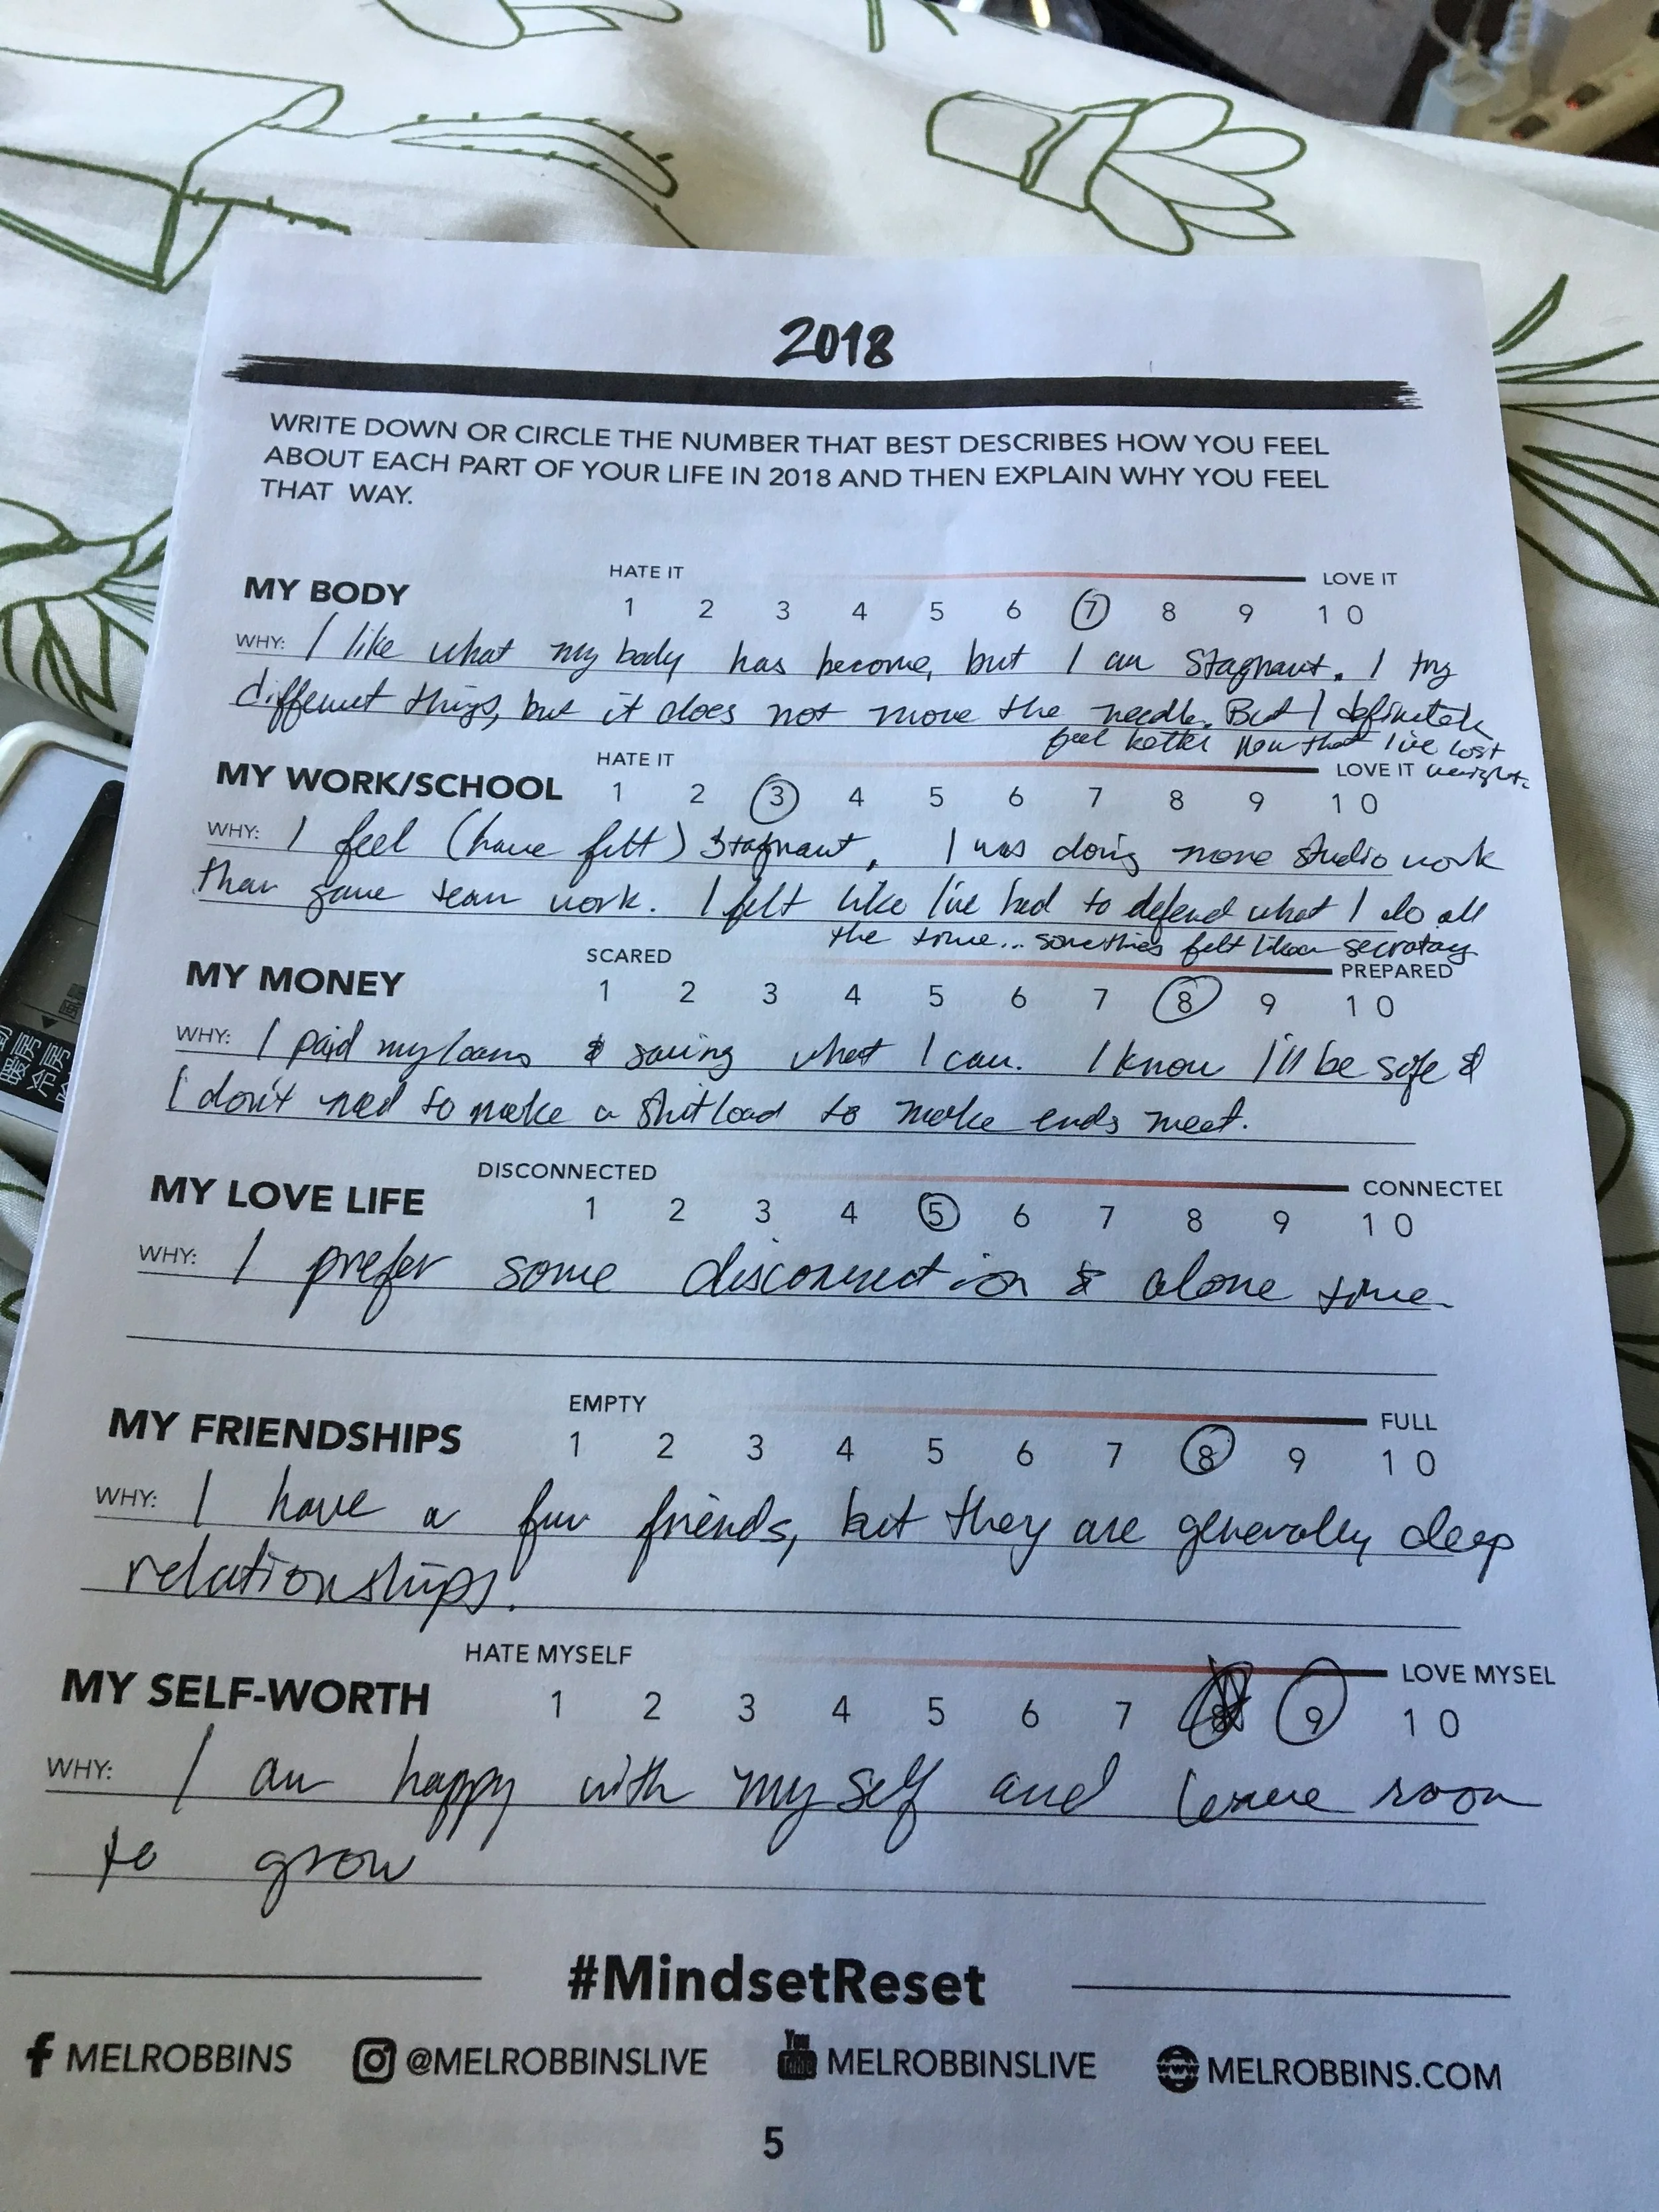 2018
WRITE DOWN OR CIRCLE THE NUMBER THAT BEST DESCRIBES HOW YOU FEEL
ABOUT EACH PART OF YOUR LIFE IN 2018 AND THEN EXPLAIN WHY YOU FEEL
THAT WAY.
HATE IT LOVE IT
MY BODY 1 2 3 4 5 6 7 8 9 10
WHY: I like what my body has become, but I am stagnant. I try
different things, but it does not move the needle. But I definitely
feel better now that I've lost
weight.
HATE IT LOVE IT
MY WORK/SCHOOL 1 2 3 4 5 6 7 8 9 10
WHY: I feel (have felt) stagnant. I was doing more studio work
than game team work. I felt like I've had to defend what I do all
the time... sometimes felt like a secratary
SCARED PREPARED
MY MONEY 1 2 3 4 5 6 7 8 9 10
WHY: I paid my loans & saving what I can. I know I'll be safe &
I don't need to make a shitload to make ends meet.
DISCONNECTED CONNECTED
MY LOVE LIFE 1 2 3 4 5 6 7 8 9 10
WHY: I prefer some disconnection & alone time.
EMPTY FULL
MY FRIENDSHIPS 1 2 3 4 5 6 7 8 9 10
WHY: I have a few friends, but they are generally deep
relationships.
HATE MYSELF LOVE MYSEL
MY SELF-WORTH 1 2 3 4 5 6 7 8 9 10
WHY: I am happy with myself and leave room
to grow
#MindsetReset
f MELROBBINS @MELROBBINSLIVE You Tube MELROBBINSLIVE www MELROBBINS.COM
5
暖房
冷房